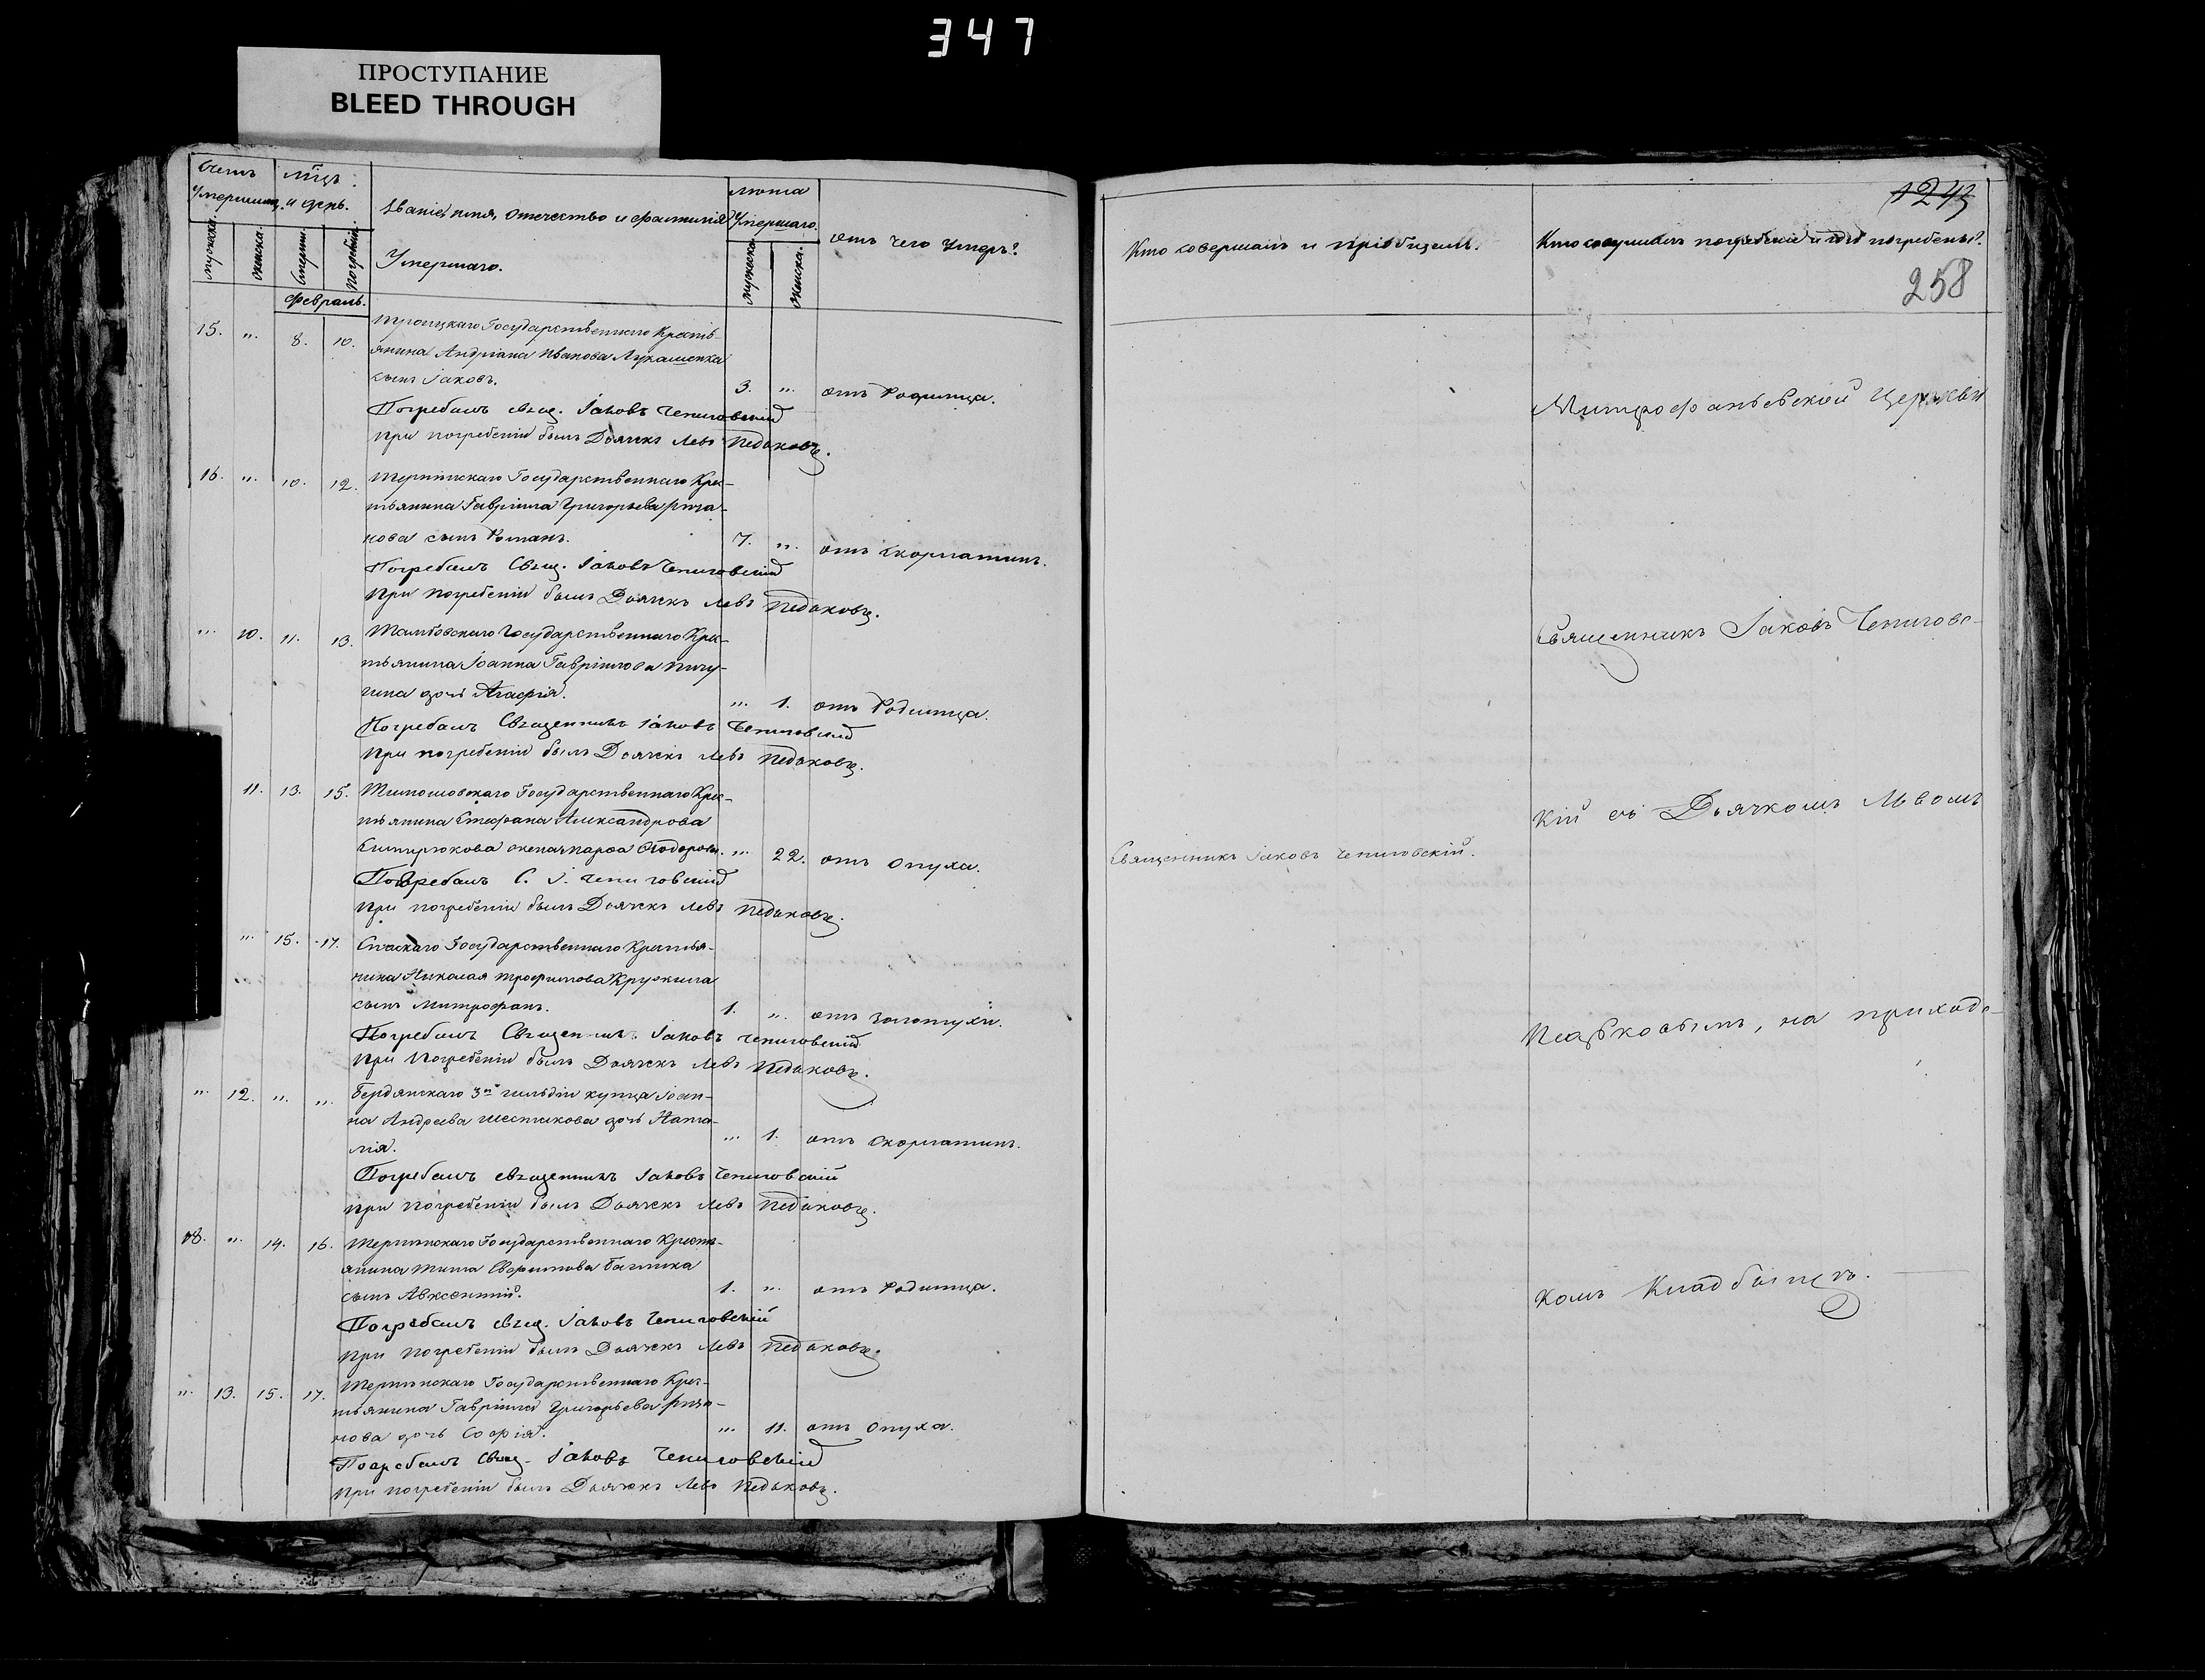 347
ПРОСТУПАНИЕ
BLEED THROUGH
Счетъ умершихъ.
мѣсяцъ и день.
Званіе, имя, отечество и фамилія
Умершаго.
лѣта Умершаго.
отъ чего Умеръ?
мужеска.
женска.
Смерти.
Погребенія.
мужеска.
женска.
Февраль.
15. " 8. 10. Троицкаго Государственнаго Крестъ-
янина Андріана Иванова Лукашенка
сынъ Іаковъ. 3. " отъ Родимца.
Погребалъ свящ. Іаковъ Чепиговскій
При погребеніи былъ Дьячекъ Левъ Педьковъ.
16. " 10. 12. Терпѣнскаго Государственнаго Крес-
тьянина Гавріила Григорьева
нова сынъ Романъ. 7. " отъ скорлатинъ.
Погребалъ Свящ. Іаковъ Чепиговскій
При погребеніи былъ Дьячекъ Левъ Педьковъ.
" 10. 11. 13. Тамбовскаго Государственнаго Крес-
тьянина Іоанна Гавріилова Пичу-
гина дочь Агафія. " 1. отъ Родимца.
Погребалъ Священникъ Іаковъ Чепиговскій
При погребеніи былъ Дьячекъ Левъ Педьковъ.
11. 13. 15. Тимошовскаго Государственнаго Крес-
тьянина Стефана Александрова
Бирюкова жена Ѳеодорова. " 22. отъ опуха.
Погребалъ С. І. Чепиговскій
При погребеніи былъ Дьячекъ Левъ Педьковъ.
" 15. 17. Спаскаго Государственнаго Крестья-
нина Николая Трофимова Кружила
сынъ Митрофанъ. 1. " отъ золотухи.
Погребалъ Священникъ Іаковъ Чепиговскій
При Погребеніи былъ Дьячекъ Левъ Педьковъ.
" 12. " " Бердянскаго 3й гильдіи купца Іоан-
на Андреева Шестакова дочь Ната-
лія. " 1. отъ скорлатинъ.
Погребалъ священникъ Іаковъ Чепиговскій
При погребеніи былъ Дьячекъ Левъ Педьковъ.
18. " 14. 16. Терпѣнскаго Государственнаго Кресть-
янина Тита Баглика
сынъ Авксентій. 1. " отъ Родимца.
Погребалъ свящ. Іаковъ Чепиговскій
При погребеніи былъ Дьячекъ Левъ Педьковъ.
" 13. 15. 17. Терпѣнскаго Государственнаго Крес-
тьянина Гавріила Григорьева
нова дочь Софія. " 11. отъ опуха.
Погребалъ Свящ. Іаковъ Чепиговскій
При погребеніи былъ Дьячекъ Левъ Педьковъ.
Кто совершалъ и пріобщалъ.
Кто совершалъ погребеніе и гдѣ погребены?
258
Священникъ Іаковъ Чепиговскій.
Митрофаньевской Церкви
Священникъ Іаковъ Чепиговс-
кій съ Дьячкомъ Львомъ
Педьковымъ, на приходс-
комъ Кладбищѣ.